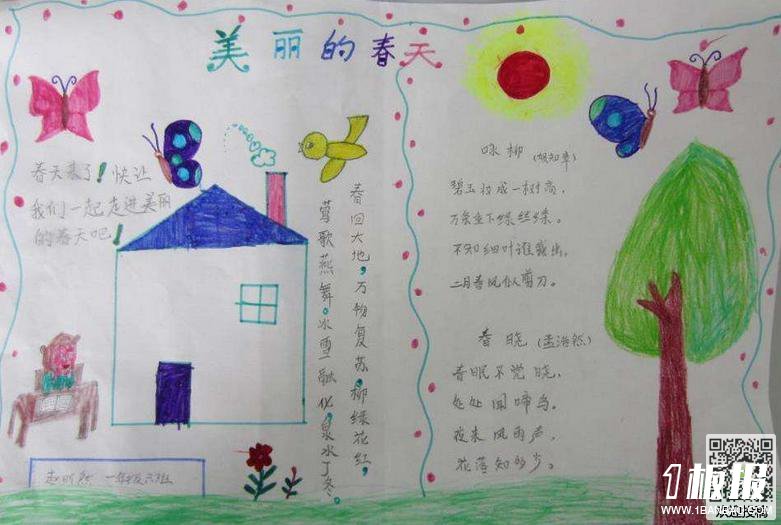 美丽的春天
春天来了！快让
我们一起走进美丽
的春天吧！
春回大地，万物复苏，柳绿花红，
莺歌燕舞。冰雪融化，泉水丁冬。
咏柳（贺知章）
碧玉妆成一树高，
万条垂下绿丝绦。
不知细叶谁裁出，
二月春风似剪刀。
春晓（孟浩然）
春眠不觉晓，
处处闻啼鸟。
夜来风雨声，
花落知多少。
一年级六班
1板报
WWW.1BANBAO.COM